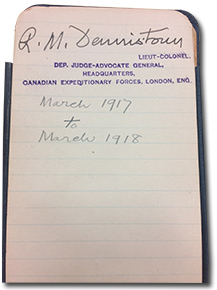 R. M. Dennistoun
LIEUT-COLONEL.
DEP. JUDGE-ADVOCATE GENERAL,
HEADQUARTERS.
CANADIAN EXPEDITIONARY FORCES, LONDON, ENG.
March 1917
to
March 1918